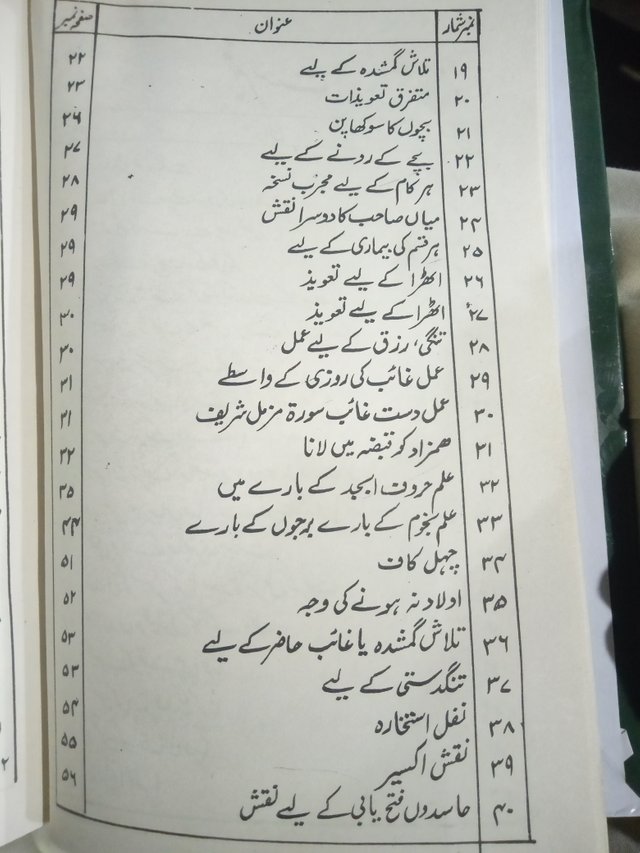 نمبر شمار عنوان صفحہ نمبر
۱۹ تلاش گمشدہ کے لیے ۲۲
۲۰ متفرق تعویذات ۲۳
۲۱ بچوں کا سوکھا پن ۲۶
۲۲ بچے کے رونے کے لیے ۲۷
۲۳ ہر کام کے لیے مجرب نسخہ ۲۸
۲۴ میاں صاحب کا دوسرا نقش ۲۹
۲۵ ہر قسم کی بیماری کے لیے ۲۹
۲۶ اٹھرا کے لیے تعویذ ۲۹
۲۷ اٹھرا کے لیے تعویذ ۳۰
۲۸ تنگی، رزق کے لیے عمل ۳۰
۲۹ عمل غائب کی روزی کے واسطے ۳۱
۳۰ عمل دست غائب سورۃ مزمل شریف ۳۱
۳۱ ہمزاد کو قبضہ میں لانا ۳۲
۳۲ علم حروف ابجد کے بارے میں ۳۵
۳۳ علم نجوم کے بارے برجوں کے بارے ۴۴
۳۴ چہل کاف ۵۱
۳۵ اولاد نہ ہونے کی وجہ ۵۲
۳۶ تلاش گمشدہ یا غائب حاضر کے لیے ۵۳
۳۷ تنگدستی کے لیے ۵۳
۳۸ نفل استخارہ ۵۴
۳۹ نقش اکسیر ۵۵
۴۰ حاسدوں فتح یابی کے لیے نقش ۵۶